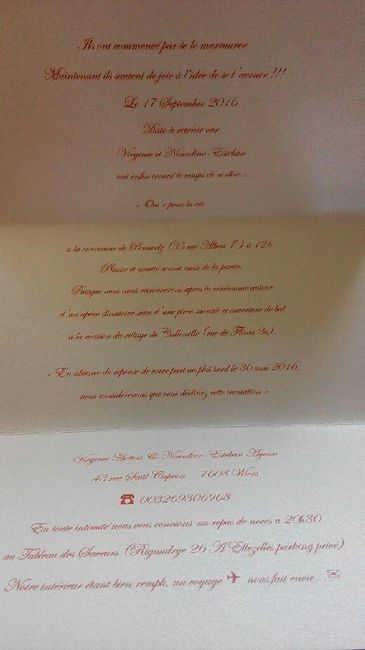 Ils ont commencé par se le murmurer
Maintenant ils sautent de joie à l'idée de se l'avouer !!!
Le 17 Septembre 2016
Date à retenir car
Virginie et Nourdine-Esteban
ont enfin trouvé le temps de se dire...
« Oui » pour la vie
à la commune de (35 rue Albert 1er) à 12h.
Plaisir et amitié seront aussi de la partie.
Puisque nous nous retrouverons après la cérémonie autour
d'un apéro dinatoire suivi d'une pièce montée et ouverture de bal
à la maison du village de Callenelle (rue de Flines 3a).
« En absence de réponse de votre part au plus tard le 30 mai 2016,
nous considérerons que vous déclinez cette invitation »
Virginie & Nourdine-Esteban
43 rue Paul Capron 7608 Wiers
☎ 003269300968
En toute intimité nous vous convions un repas de noces à 20h30
au Tableau des Saveurs (Rigaudrye 26-A Ellezelles parking privé)
Notre intérieur étant bien rempli, un voyage ✈ nous fait envie... ✉